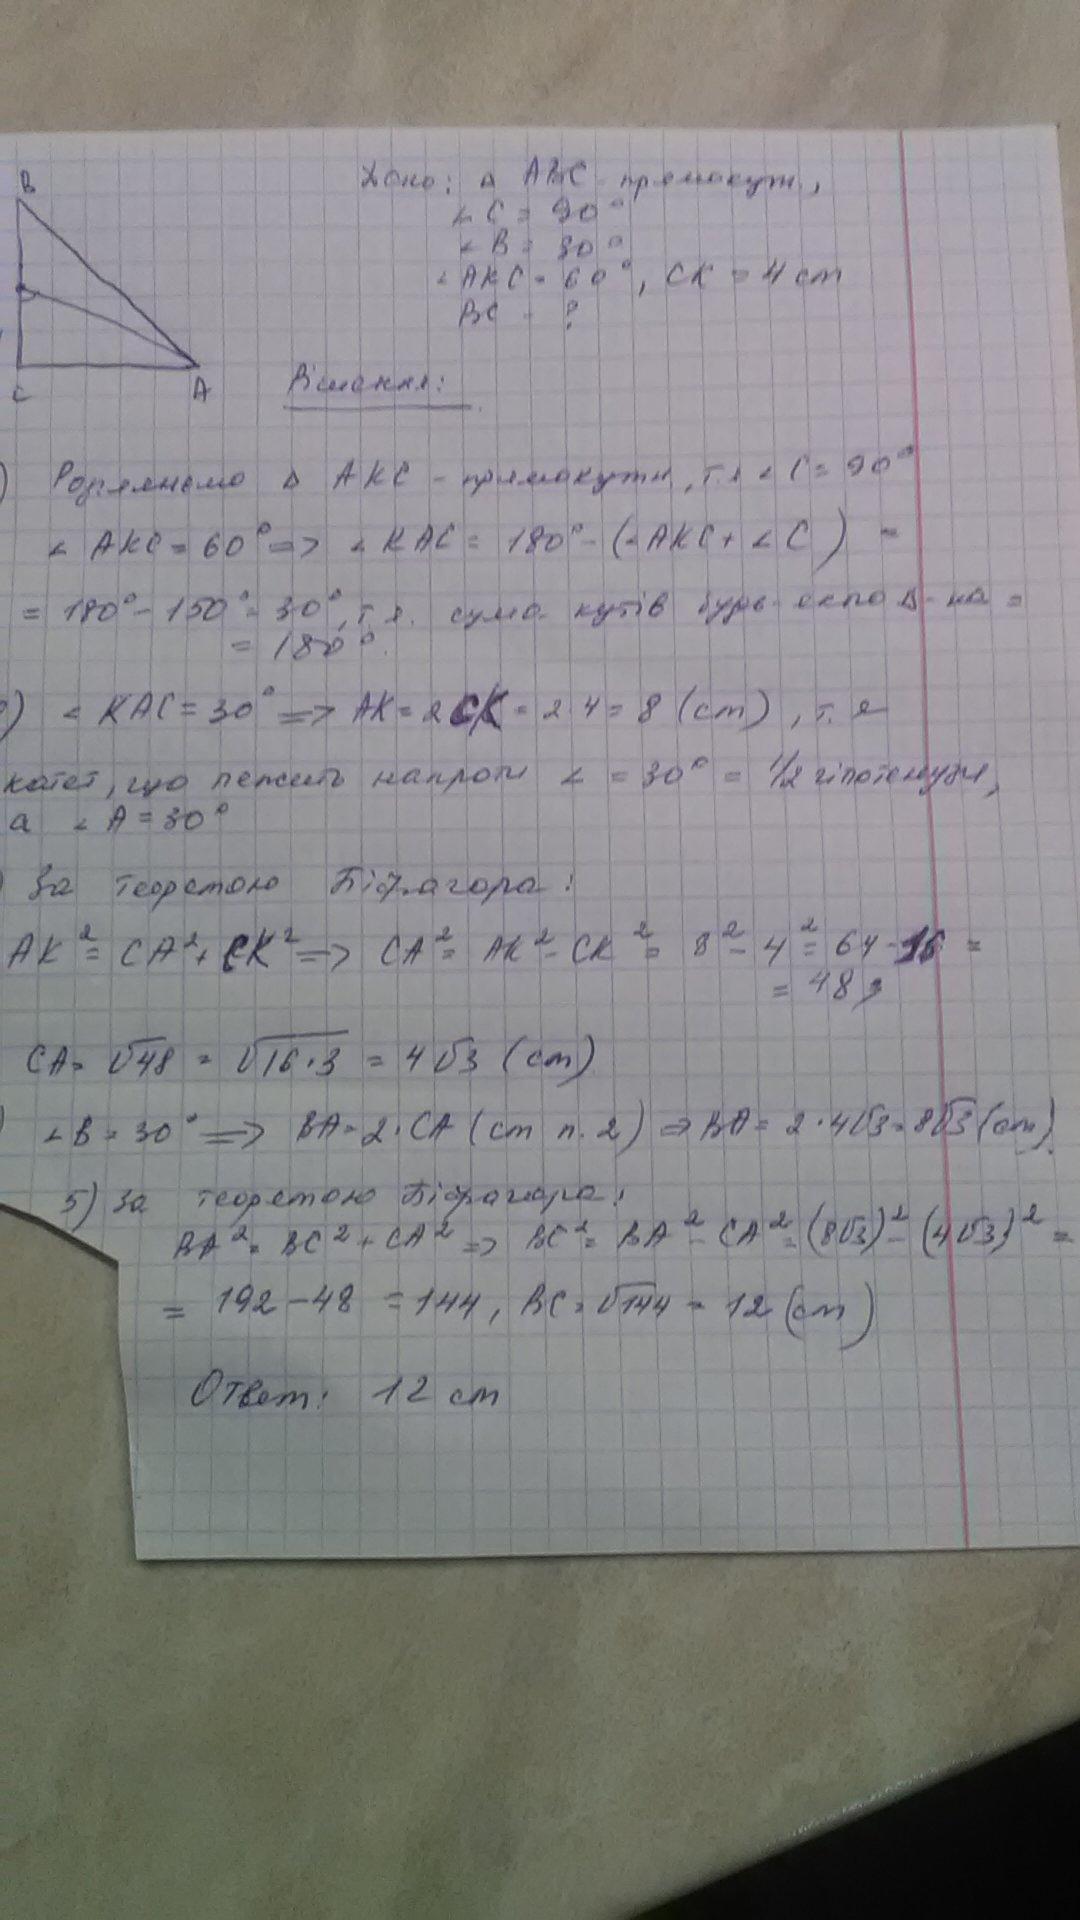 B
C
A
Дано: Δ ABC - прямокутн,
∠ C = 90°
∠ B = 30°
∠ AKC = 60°, CK = 4 cm
BC - ?
Рішення:
) Розглянемо Δ AKC - прямокутн, т.я ∠ C = 90°
∠ AKC = 60° => ∠ KAC = 180° - (∠AKC + ∠ C) =
= 180° - 150° = 30°, т.я. сума кутів будь-якого Δ-ка =
= 180°.
) ∠ KAC = 30° => AK = 2 CK = 2·4 = 8 (cm), т.я
катет, що лежить напроти ∠ = 30° = 1/2 гіпотенузи,
а ∠ A = 30°
) За теоремою Піфагора:
AK² = CA² + CK² => CA² = AK² - CK² = 8² - 4² = 64 - 16 =
= 48,
CA = √48 = √16·3 = 4√3 (cm)
) ∠B = 30° => BA = 2·CA (cm п. 2) => BA = 2·4√3 = 8√3 (cm).
5) За теоремою Піфагора:
BA² = BC² + CA² => BC² = BA² - CA² = (8√3)² - (4√3)² =
= 192 - 48 = 144, BC = √144 = 12 (cm)
Ответ: 12 cm